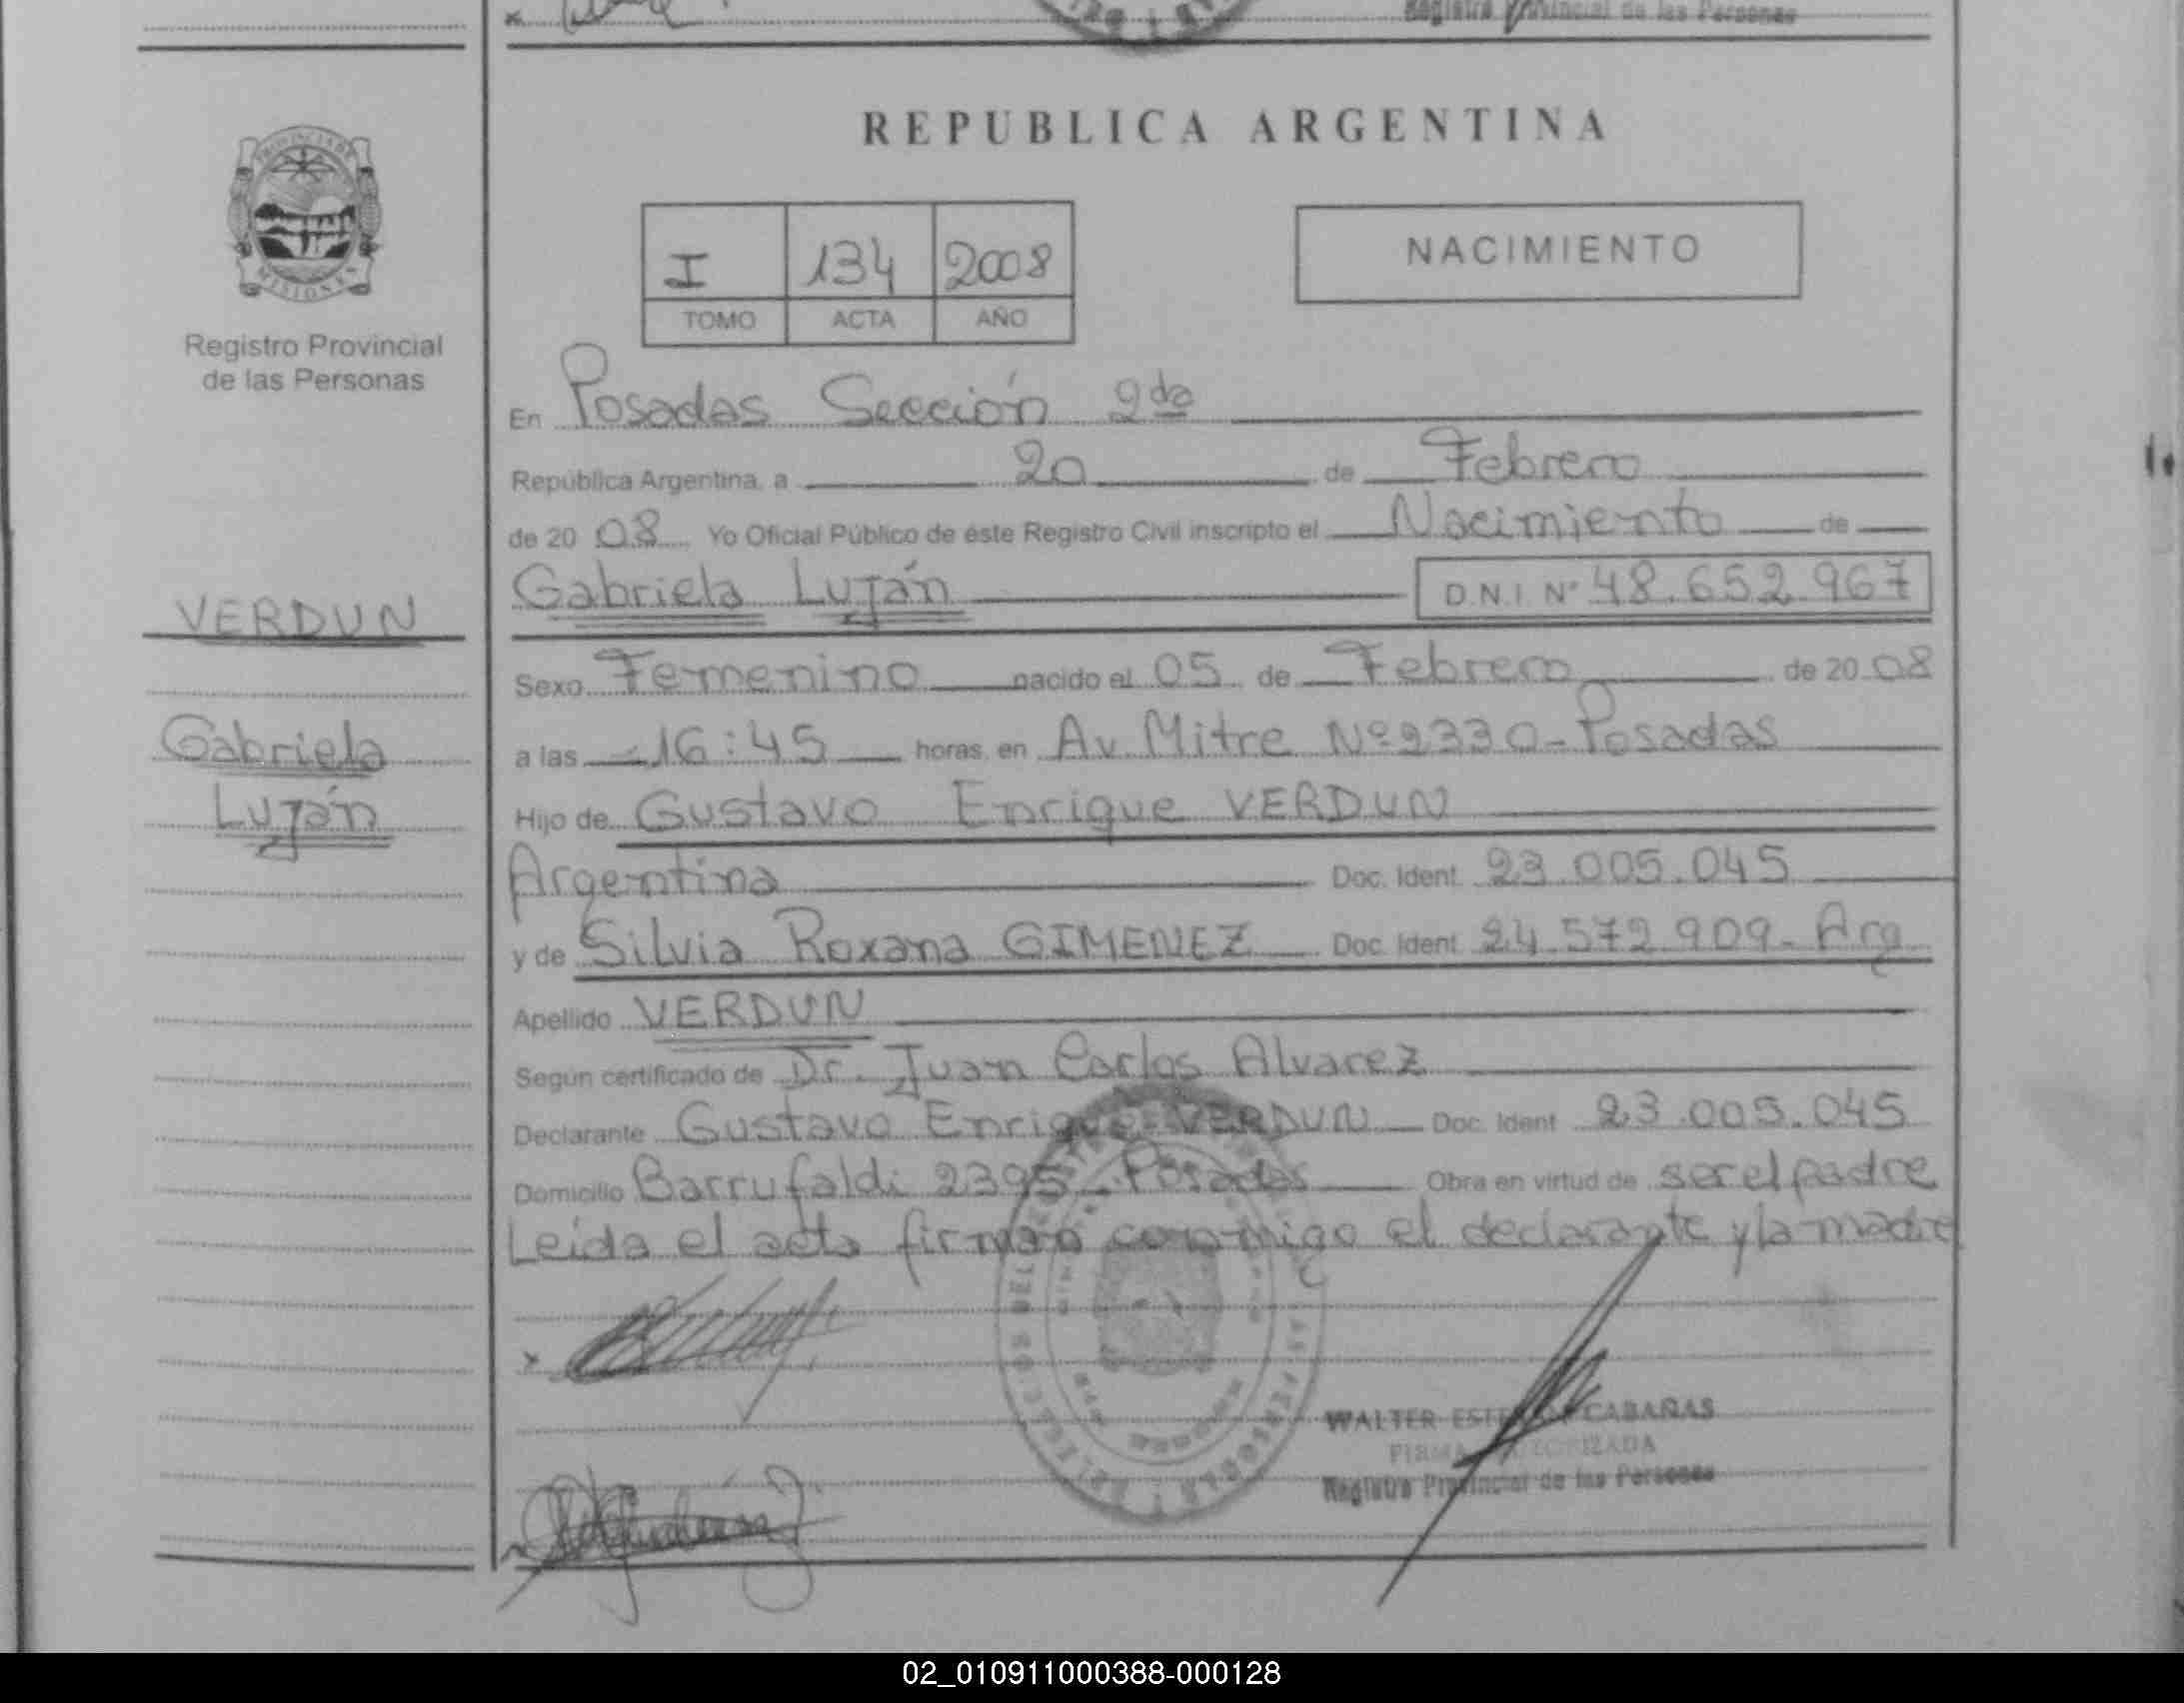 Registro Provincial de las Personas
REPUBLICA ARGENTINA
PROVINCIA DE
MISIONES
Registro Provincial
de las Personas
I 134 2008
TOMO ACTA AÑO
NACIMIENTO
VERDUN
Gabriela
Luján
En Posadas Sección 2da
República Argentina, a 20 de Febrero
de 20 08 Yo Oficial Público de éste Registro Civil inscripto el Nacimiento de
Gabriela Luján D.N.I. Nº 48.652.967
Sexo Femenino nacido el 05 de Febrero de 20 08
a las 16:45 horas, en Av. Mitre Nº 2330 - Posadas
Hijo de Gustavo Enrique VERDUN
Argentina Doc. Ident. 23.005.045
y de Silvia Roxana GIMENEZ Doc. Ident. 24.572.909 - Arg
Apellido VERDUN
Según certificado de Dr. Juan Carlos Alvarez
Declarante Gustavo Enrique VERDUN Doc. Ident. 23.005.045
Domicilio Barrufaldi 2395 - Posadas Obra en virtud de ser el padre
Leída el acta firman conmigo el declarante y la madre
WALTER CABAÑAS
FIRMA AUTORIZADA
Registro Provincial de las Personas
02_010911000388-000128